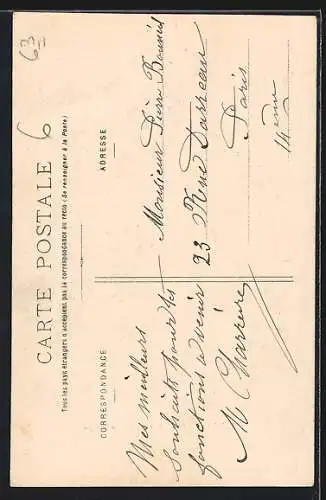 63
CARTE POSTALE 6
Tous les pays étrangers n'acceptent pas la correspondance au recto (Se renseigner à la Poste)
CORRESPONDANCE
ADRESSE
Mes meilleurs
souhaits pour tes
fonctions à venir
M Charrière
Monsieur Pierre
23 Rue Darreau
Paris
14 ème